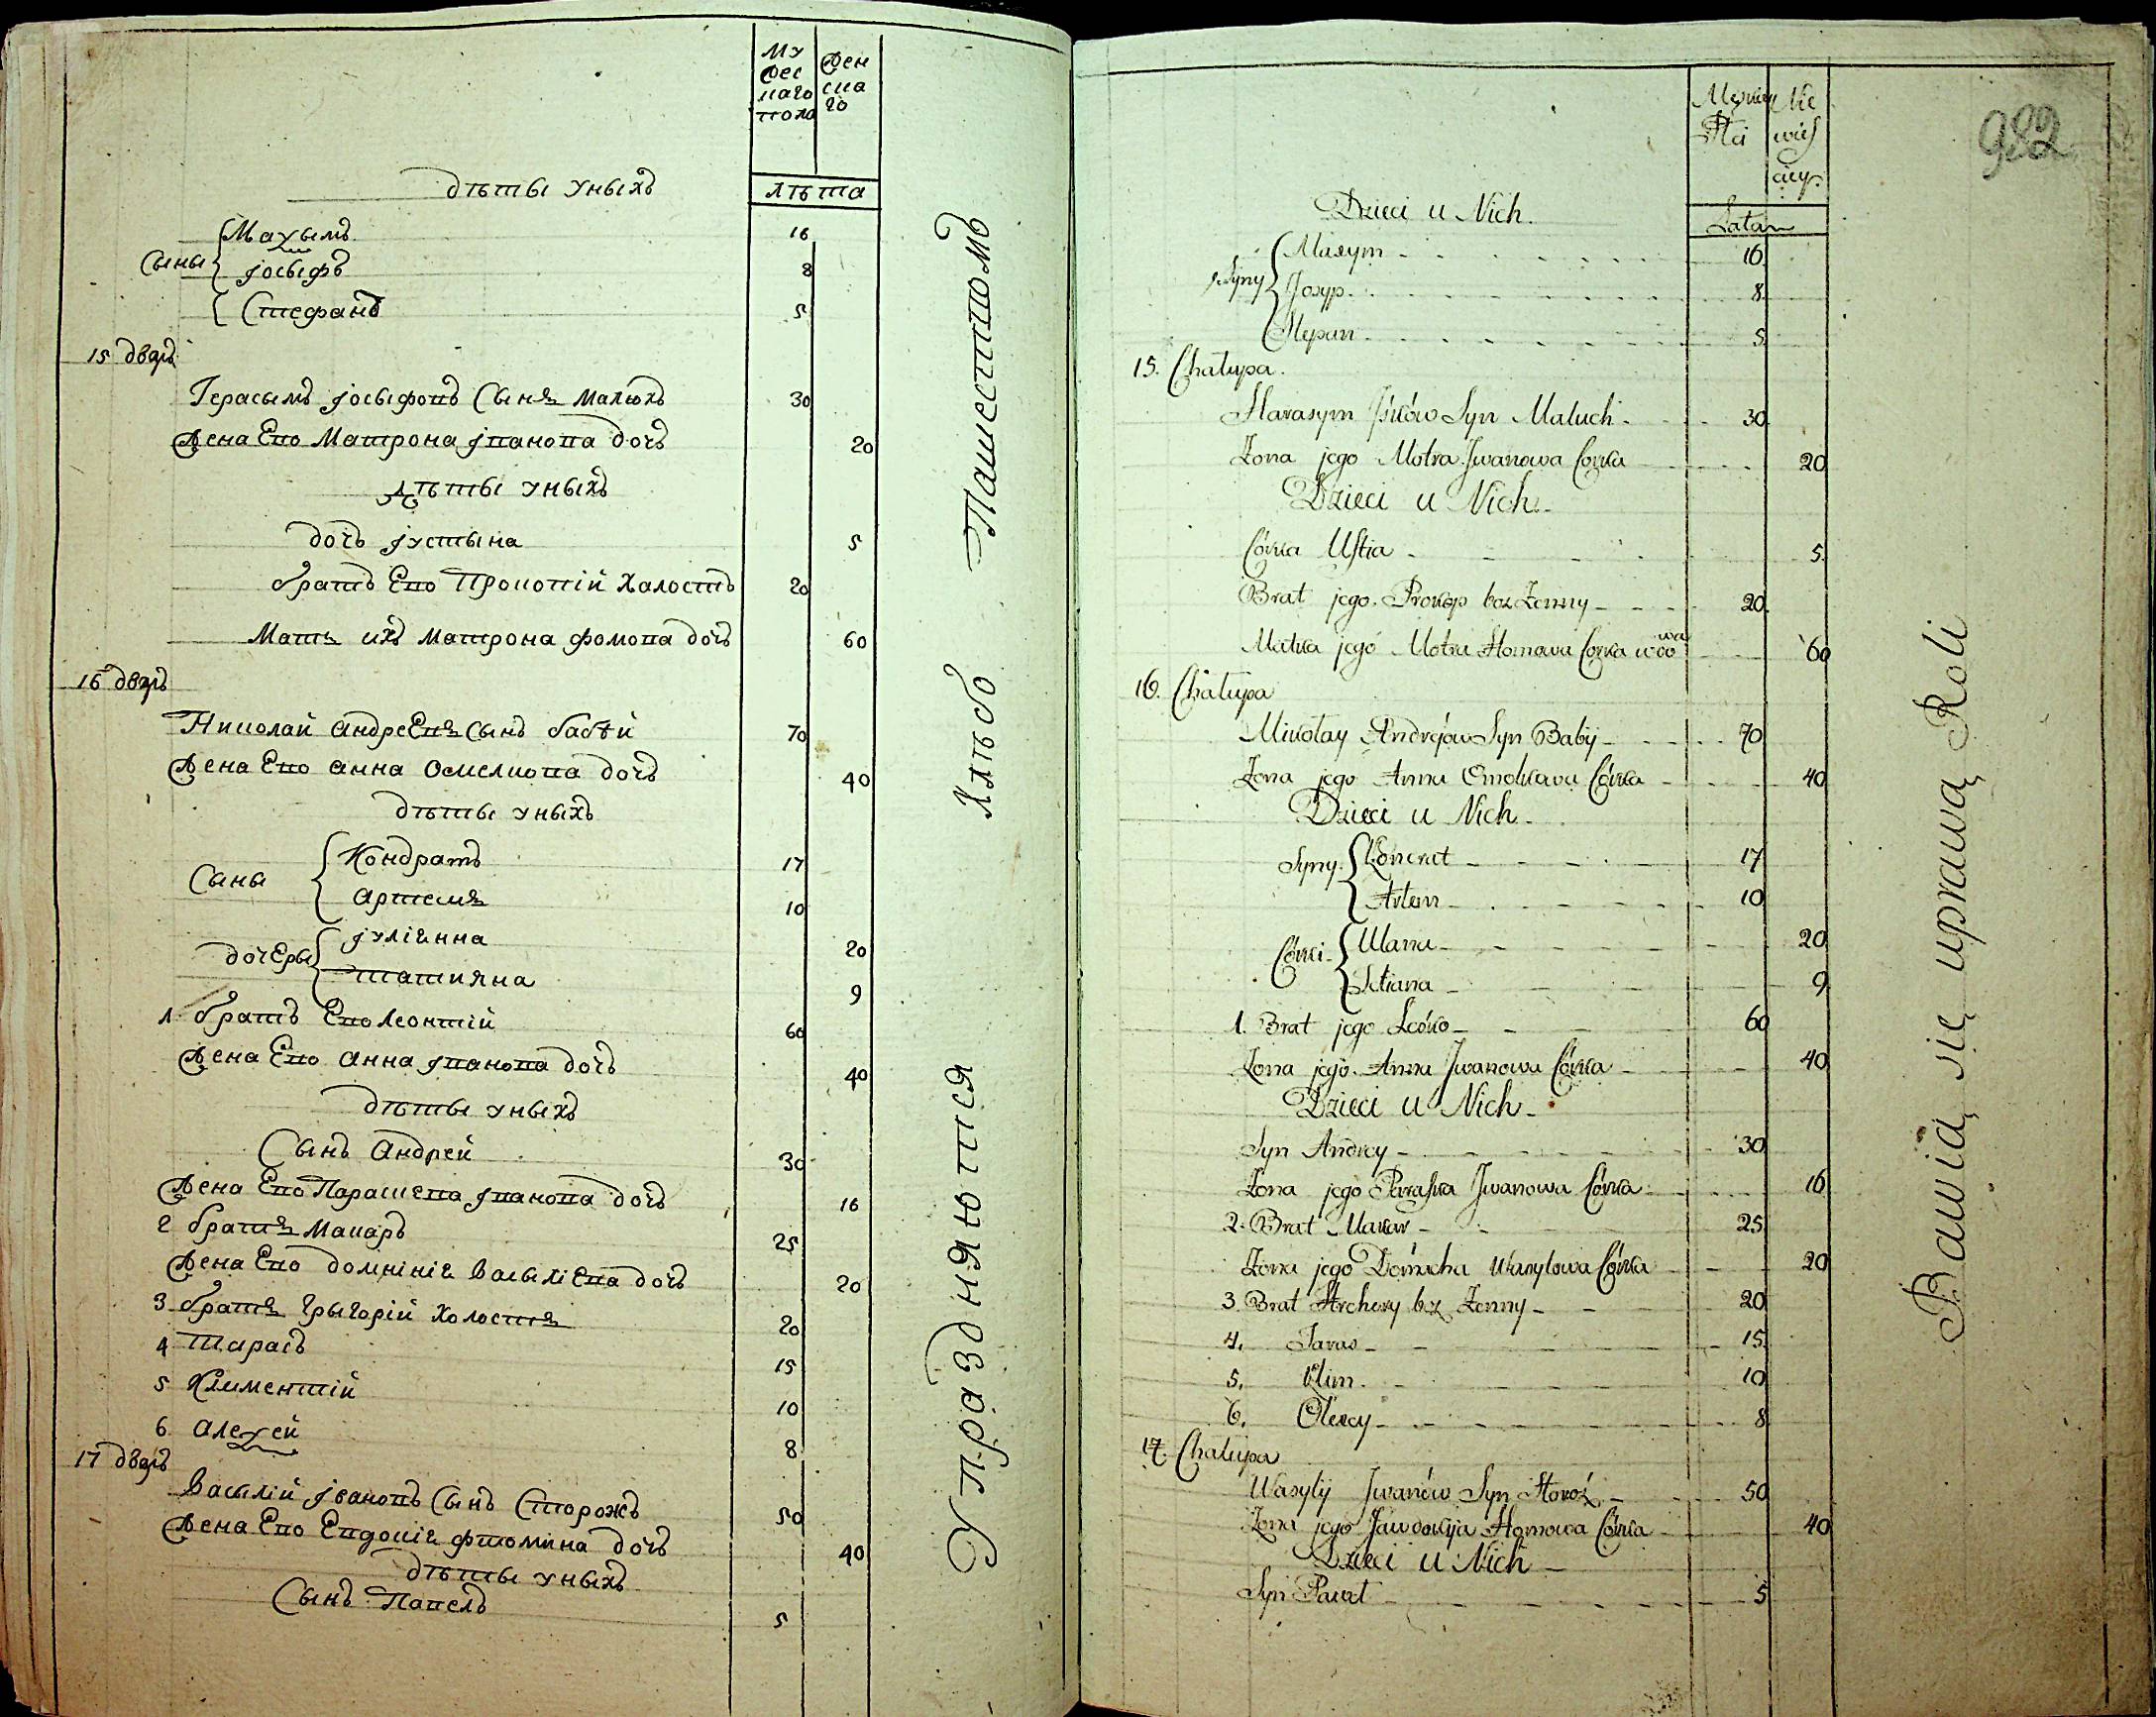 Му
жес
каго
пола
Жен
ска
го
лѣта
дѣты уныхъ
Сыны
Маѯымъ 16
Іосыфъ 8
Стефанъ 5
15 дворъ
Герасымъ Іосыфовъ Сынъ Малюхъ 30
Жена Его Матрона Іванова дочъ 20
Дѣты уныхъ
дочъ Іустына 5
братъ Его Прокопій Халостъ 20
Матъ ихъ Матрона Фомова дочъ 60
16 дворъ
Николай андреЕвъ Сынъ бабѣй 70
Жена Его анна Осмелкова дочъ 40
дѣты уныхъ
Сыны
Кондратъ 17
артемъ 10
дочЕры
Іуліанна 20
татияна 9
1 братъ Его Леонтій 60
Жена Его анна Іванова дочъ 40
дѣты уныхъ
Сынъ андрей 30
Жена Его Параскева Іванова дочъ 16
2 братъ Макаръ 25
Жена Его домникіа василіЕва дочъ 20
3 братъ Григорій Холостъ 20
4 Тарасъ 15
5 Климентій 10
6 алеѯей 8
17 дворъ
василій Івановъ Сынъ Сторожъ 50
Жена Его Евдокіа фтомина дочъ 40
дѣты уныхъ
Сынъ Павелъ 5
Упражняются Хлѣбо Пашеством
982
Męzkiey
Płci
Nie
wieś
ciey.
Lata
Dzieci u Nich.
Syny
Maxym 16
Josyp 8
Stepan 5
15. Chałupa.
Harasym Jśków Syn Maluch 30
Zona jego Motra Jwanowa Córka 20
Dzieci u Nich
Córka Ustia 5
Brat jego Prokop bez Zenny 20
Matka jego Motra Homowa Córka wdowa 60
16. Chałupa
Mikołay Andrejów Syn Babij 70
Zona jego Anna Omelkowa Córka 40
Dzieci u Nich
Syny
Kondrat 17
Artem 10
Córki
Ulana 20
Tetiana 9
1. Brat jego Lesko 60
Zona jego Anna Jwanowa Córka 40
Dzieci u Nich
Syn Andrey 30
Zona jego Paraska Jwanowa Córka 16
2. Brat Makar 25
Zona jego Domicha Wasylowa Córka 20
3. Brat Hrehory bez Zenny 20
4. Taras 15
5. Klim 10
6. Olexey 8
17. Chałupa
Wasylij Jwanów Syn Storoż 50
Zona jego Jawdokija Homowa Córka 40
Dzieci u Nich
Syn Paweł 5
Bawią się uprawą Roli